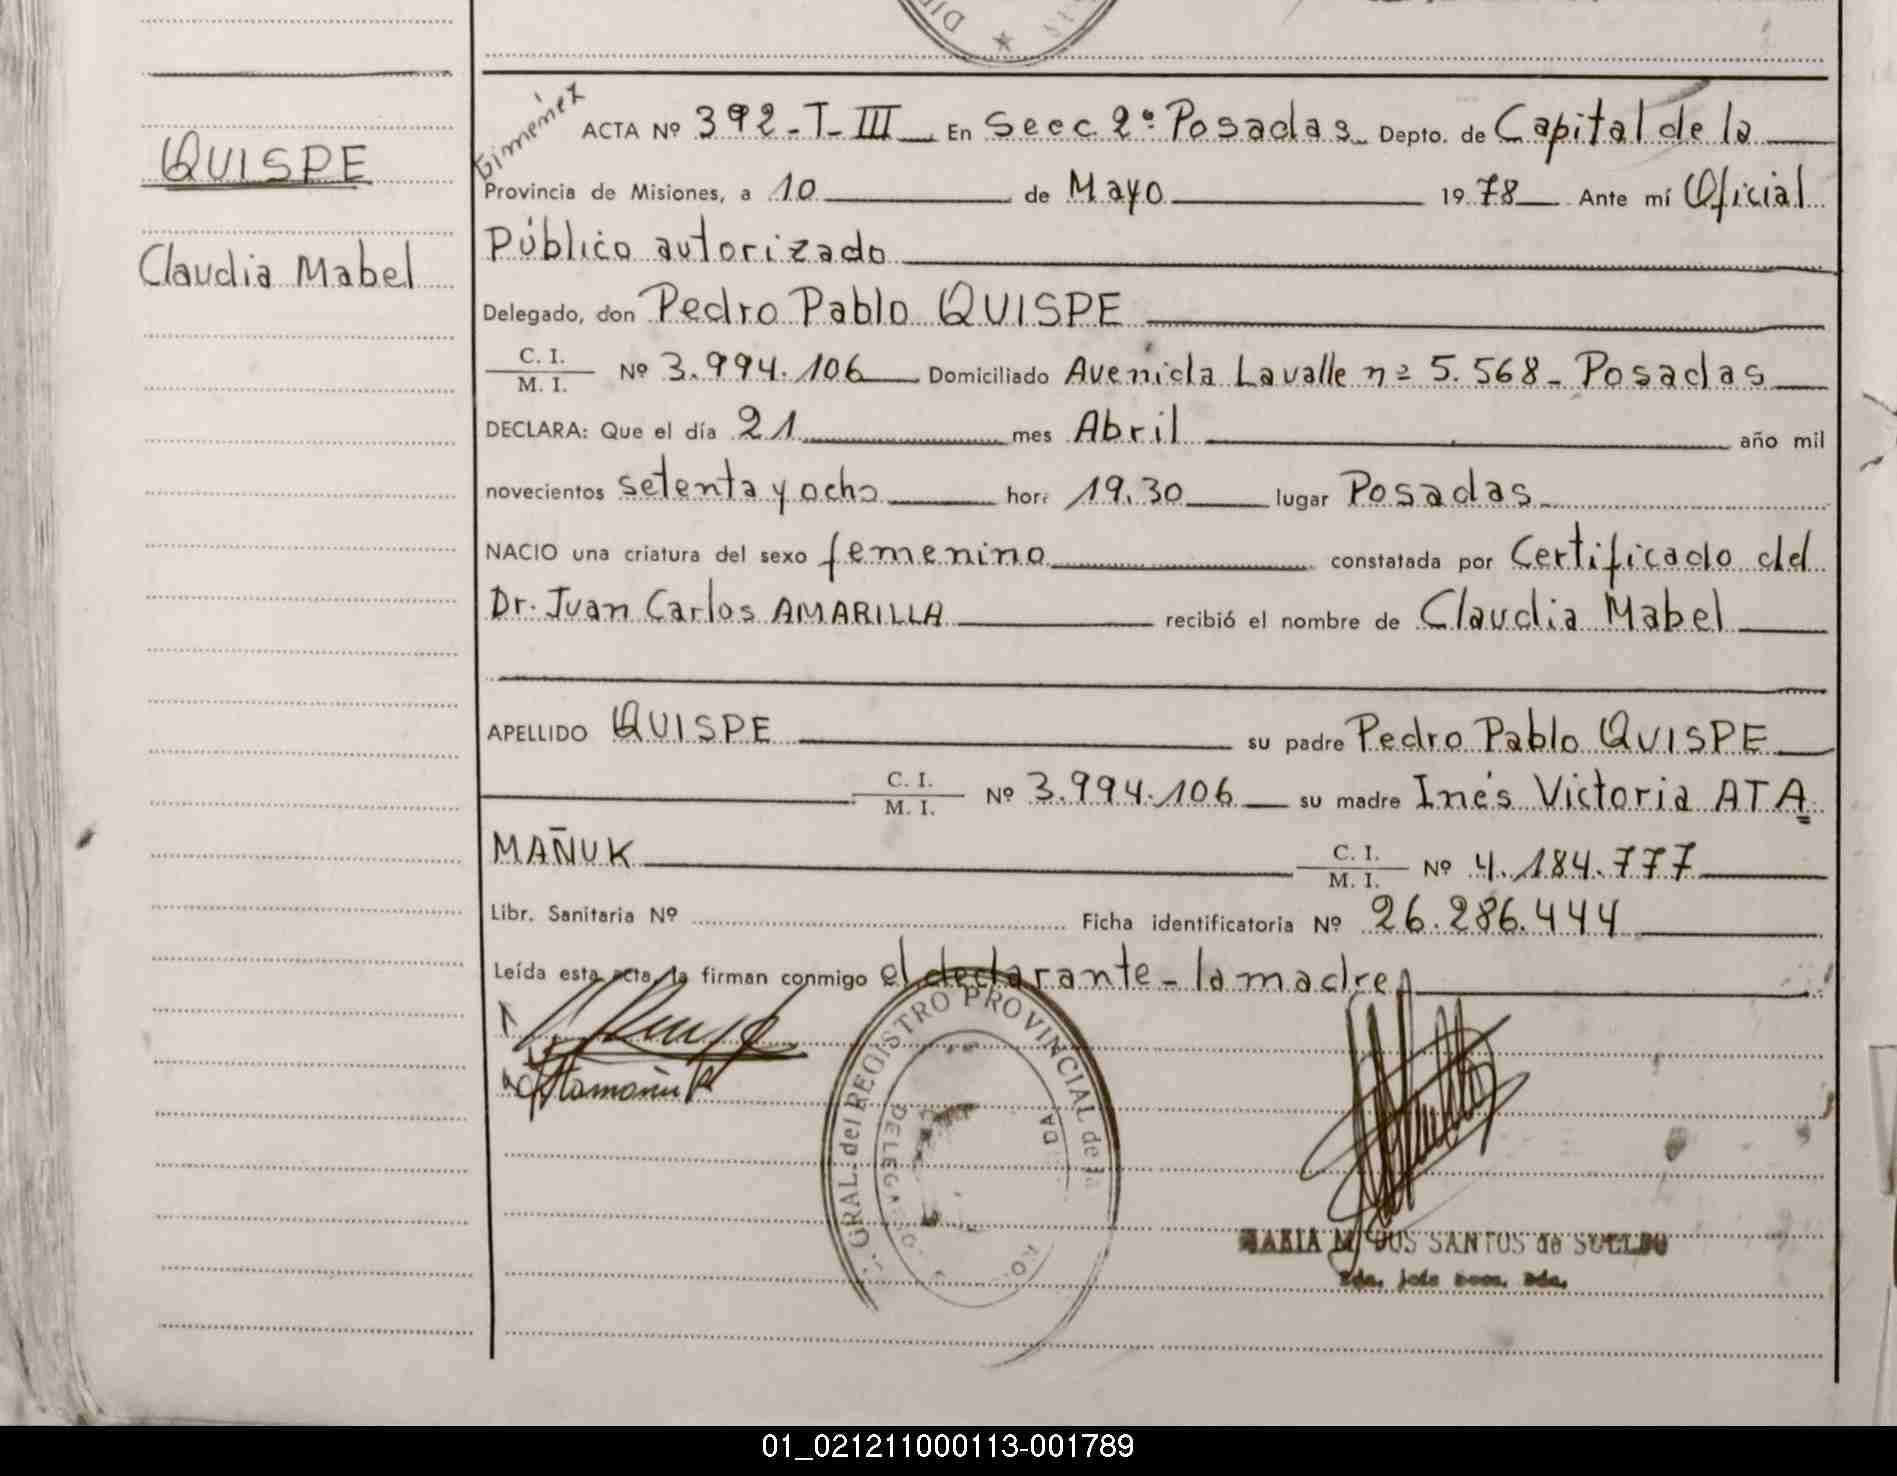 DI
QUISPE
Claudia Mabel
Gimenez
ACTA Nº 392-T-III En Secc. 2º Posadas Depto. de Capital de la
Provincia de Misiones, a 10 de Mayo 1978 Ante mí Oficial
Público autorizado
Delegado, don Pedro Pablo QUISPE
C. I.
M. I. Nº 3.994.106 Domiciliado Avenida Lavalle nº 5.568 - Posadas
DECLARA: Que el día 21 mes Abril año mil
novecientos setenta y ocho hora 19.30 lugar Posadas
NACIO una criatura del sexo femenino constatada por Certificado del
Dr. Juan Carlos AMARILLA recibió el nombre de Claudia Mabel
APELLIDO QUISPE su padre Pedro Pablo QUISPE
C. I.
M. I. Nº 3.994.106 su madre Inés Victoria ATA
MAÑUK C. I.
M. I. Nº 4.184.777
Libr. Sanitaria Nº Ficha identificatoria Nº 26.286.444
Leída esta acta, la firman conmigo el declarante - la madre
GRAL. del REGISTRO PROVINCIAL de la
MARIA M. DOS SANTOS de
01_021211000113-001789